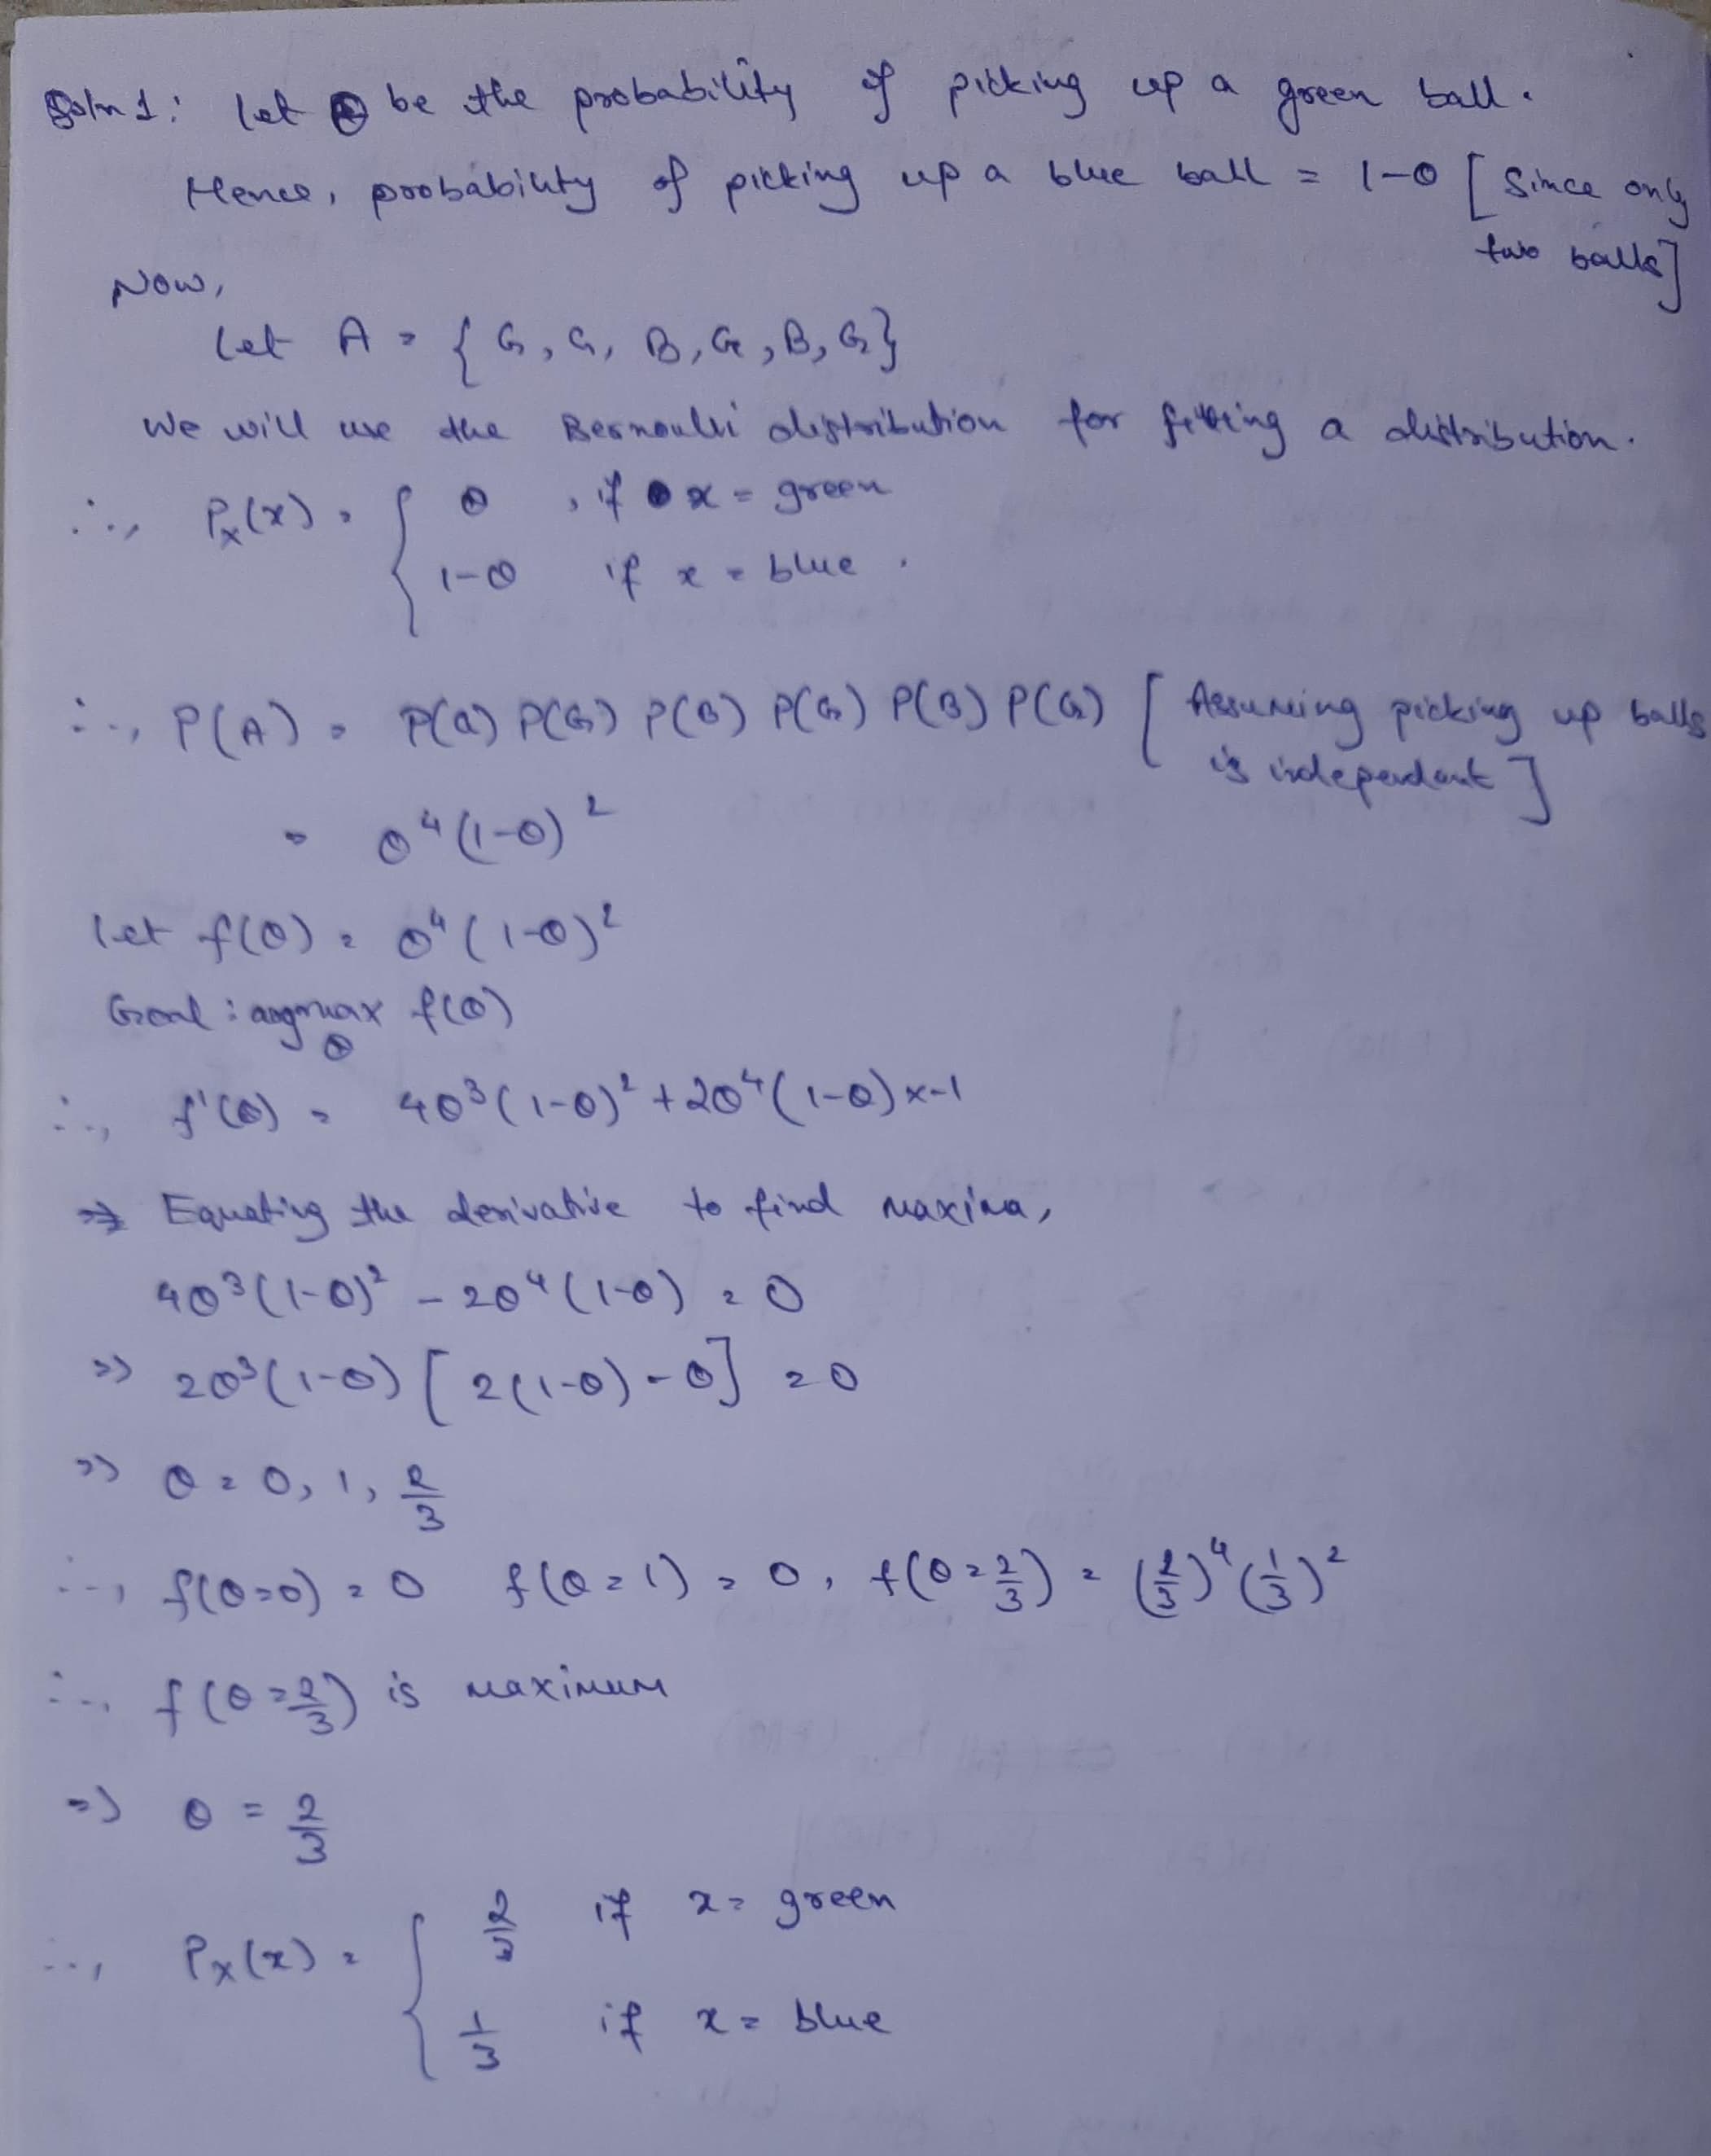 Soln 1: let θ be the probability of picking up a green ball.
Hence, probability of picking up a blue ball = 1-θ [Since only
two balls]
Now,
Let A = {G, G, B, G, B, G}
We will use the Bernoulli distribution for fitting a distribution.
∴, Pₓ(x) = { θ , if x = green
1-θ if x = blue .
∴, P(A) = P(G) P(G) P(B) P(G) P(B) P(G) [Assuming picking up balls
is independant]
= θ⁴(1-θ)²
Let f(θ) = θ⁴(1-θ)²
Goal : argmax f(θ)
θ
∴, f'(θ) = 4θ³(1-θ)² + 2θ⁴(1-θ)x-1
⇒ Equating the derivative to find maxima,
4θ³(1-θ)² - 2θ⁴(1-θ) = 0
⇒ 2θ³(1-θ) [2(1-θ) - θ] = 0
⇒ θ = 0, 1, 2/3
∴, f(θ=0) = 0 f(θ=1) = 0, f(θ=2/3) = (2/3)⁴(1/3)²
∴, f(θ=2/3) is maximum
⇒ θ = 2/3
∴, Pₓ(x) = { 2/3 if x = green
1/3 if x = blue